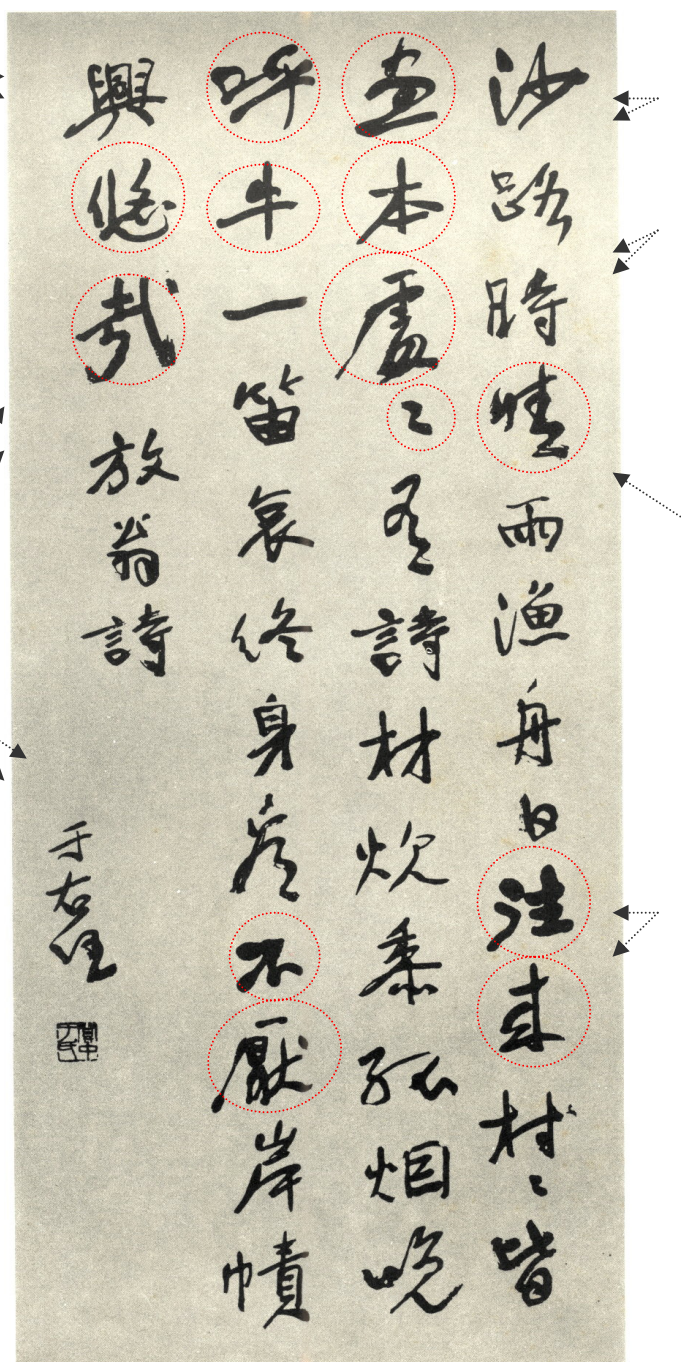 沙路時晴雨漁舟日往來村〻皆
畫本處〻有詩材炊黍孤烟晚
呼牛一笛哀終身看不厭岸幘
興悠哉放翁詩
于右任
關中于氏